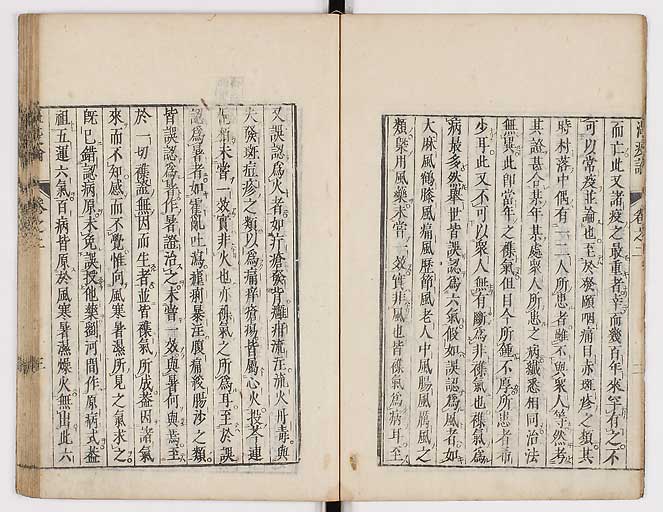 而亡此又諸疫之最重者幸而幾百年來罕有之不
可以常疫並論也至於發頤咽痛目赤斑疹之類其
時村落中偶有一二人所患者雖不與衆人等然考
其證甚合某年某處衆人所患之病纖悉相同治法
無異此即當年之雜氣但目今所鍾不厚所患者稀
少耳此又不可以衆人無有斷爲非雜氣也雜氣爲
病最多然舉世皆誤認爲六氣假如誤認爲風者如
大麻風鶴膝風痛風歷節風老人中風腸風厲風之
類槩用風藥未嘗一效實非風也皆雜氣爲病耳至
又誤認爲火者如疔瘡發背癰疽流注流火丹毒與
夫發斑痘疹之類以爲痛痒瘡瘍皆屬心火投芩連
梔栢未嘗一效實非火也亦雜氣之所爲耳至於誤
認爲暑者如霍亂吐瀉瘧痢暴注腹痛絞腸沙之類
皆誤認爲暑作暑證治之未嘗一效與暑何與焉至
於一切雜證無因而生者並皆雜氣所成蓋因諸氣
來而不知感而不覺惟向風寒暑濕所見之氣求之
既已錯認病原未免誤投他藥劉河間作原病式蓋
祖五運六氣百病皆原於風寒暑濕燥火無出此六